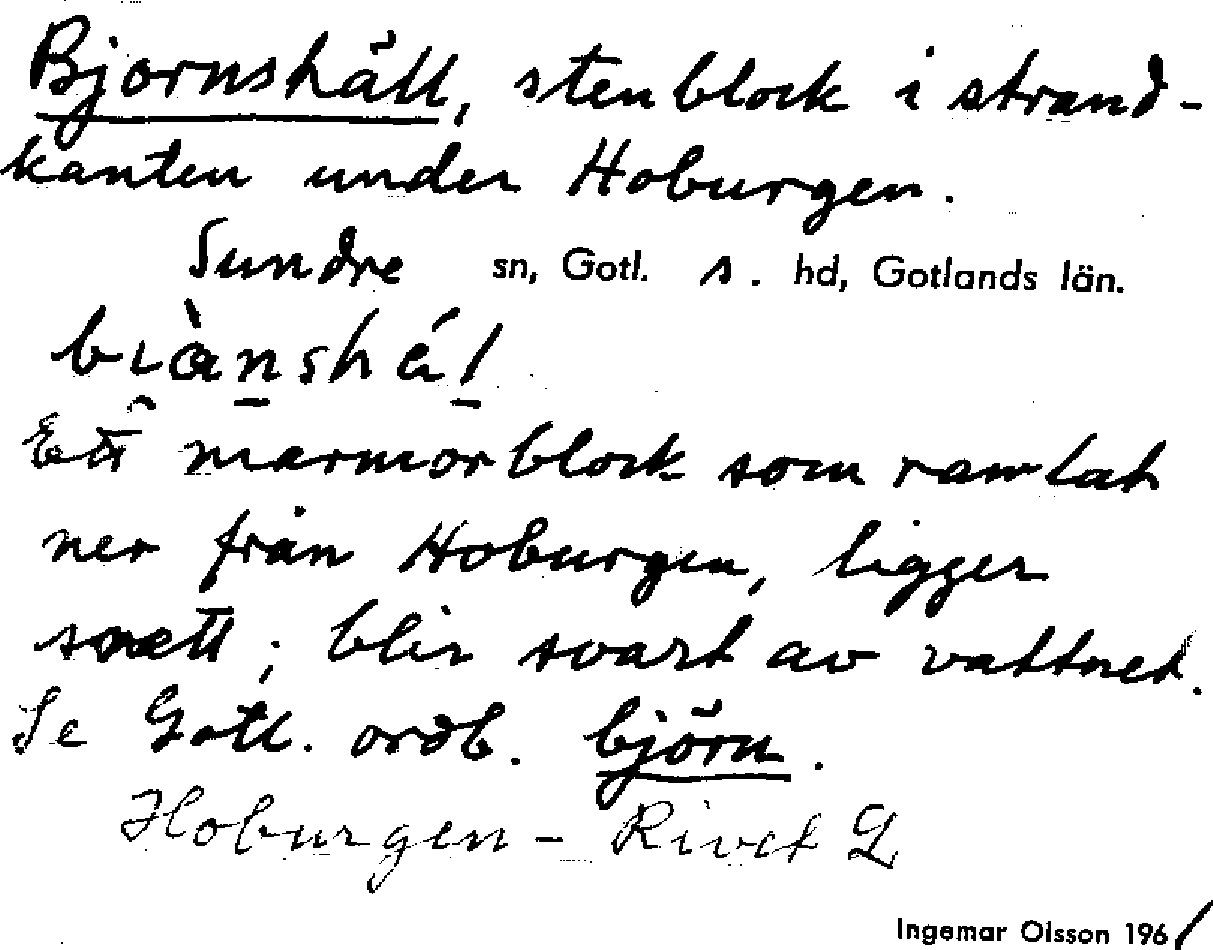 Bjornshäll, stenblock i strand-
kanten under Hoburgen.
Sundre sn, Gotl. s. hd, Gotlands län.
Ett marmorblock som ramlat
ner från Hoburgen, ligger
snett; blir svart av vattnet.
Se Gotl. ordb. björn.
Hoburgen – Rivet L
Ingemar Olsson 1961